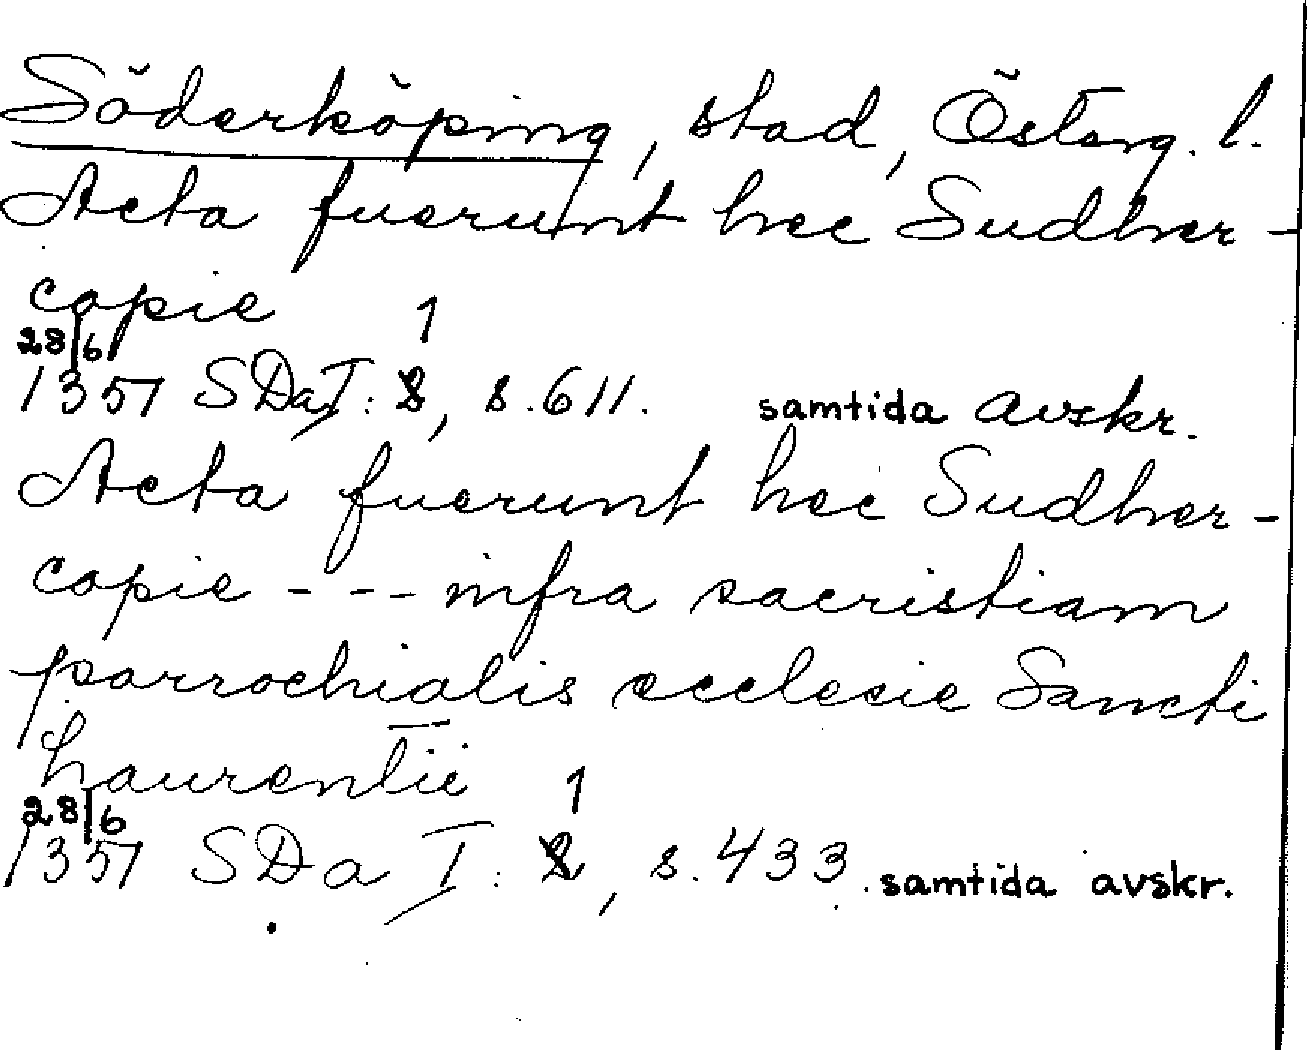 Söderköping, stad, Österg. l.
Acta fuerunt hec Sudher-
copie 1
28/6
1357 SDa I: 8, s. 611. samtida avskr.
Acta fuerunt hec Sudher-
copie --- infra sacristiam
parrochialis ecclesie Sancti
Laurentii 1
28/6
1357 SDa I: 8, s. 433. samtida avskr.